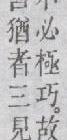 必極巧。故
猶者三見